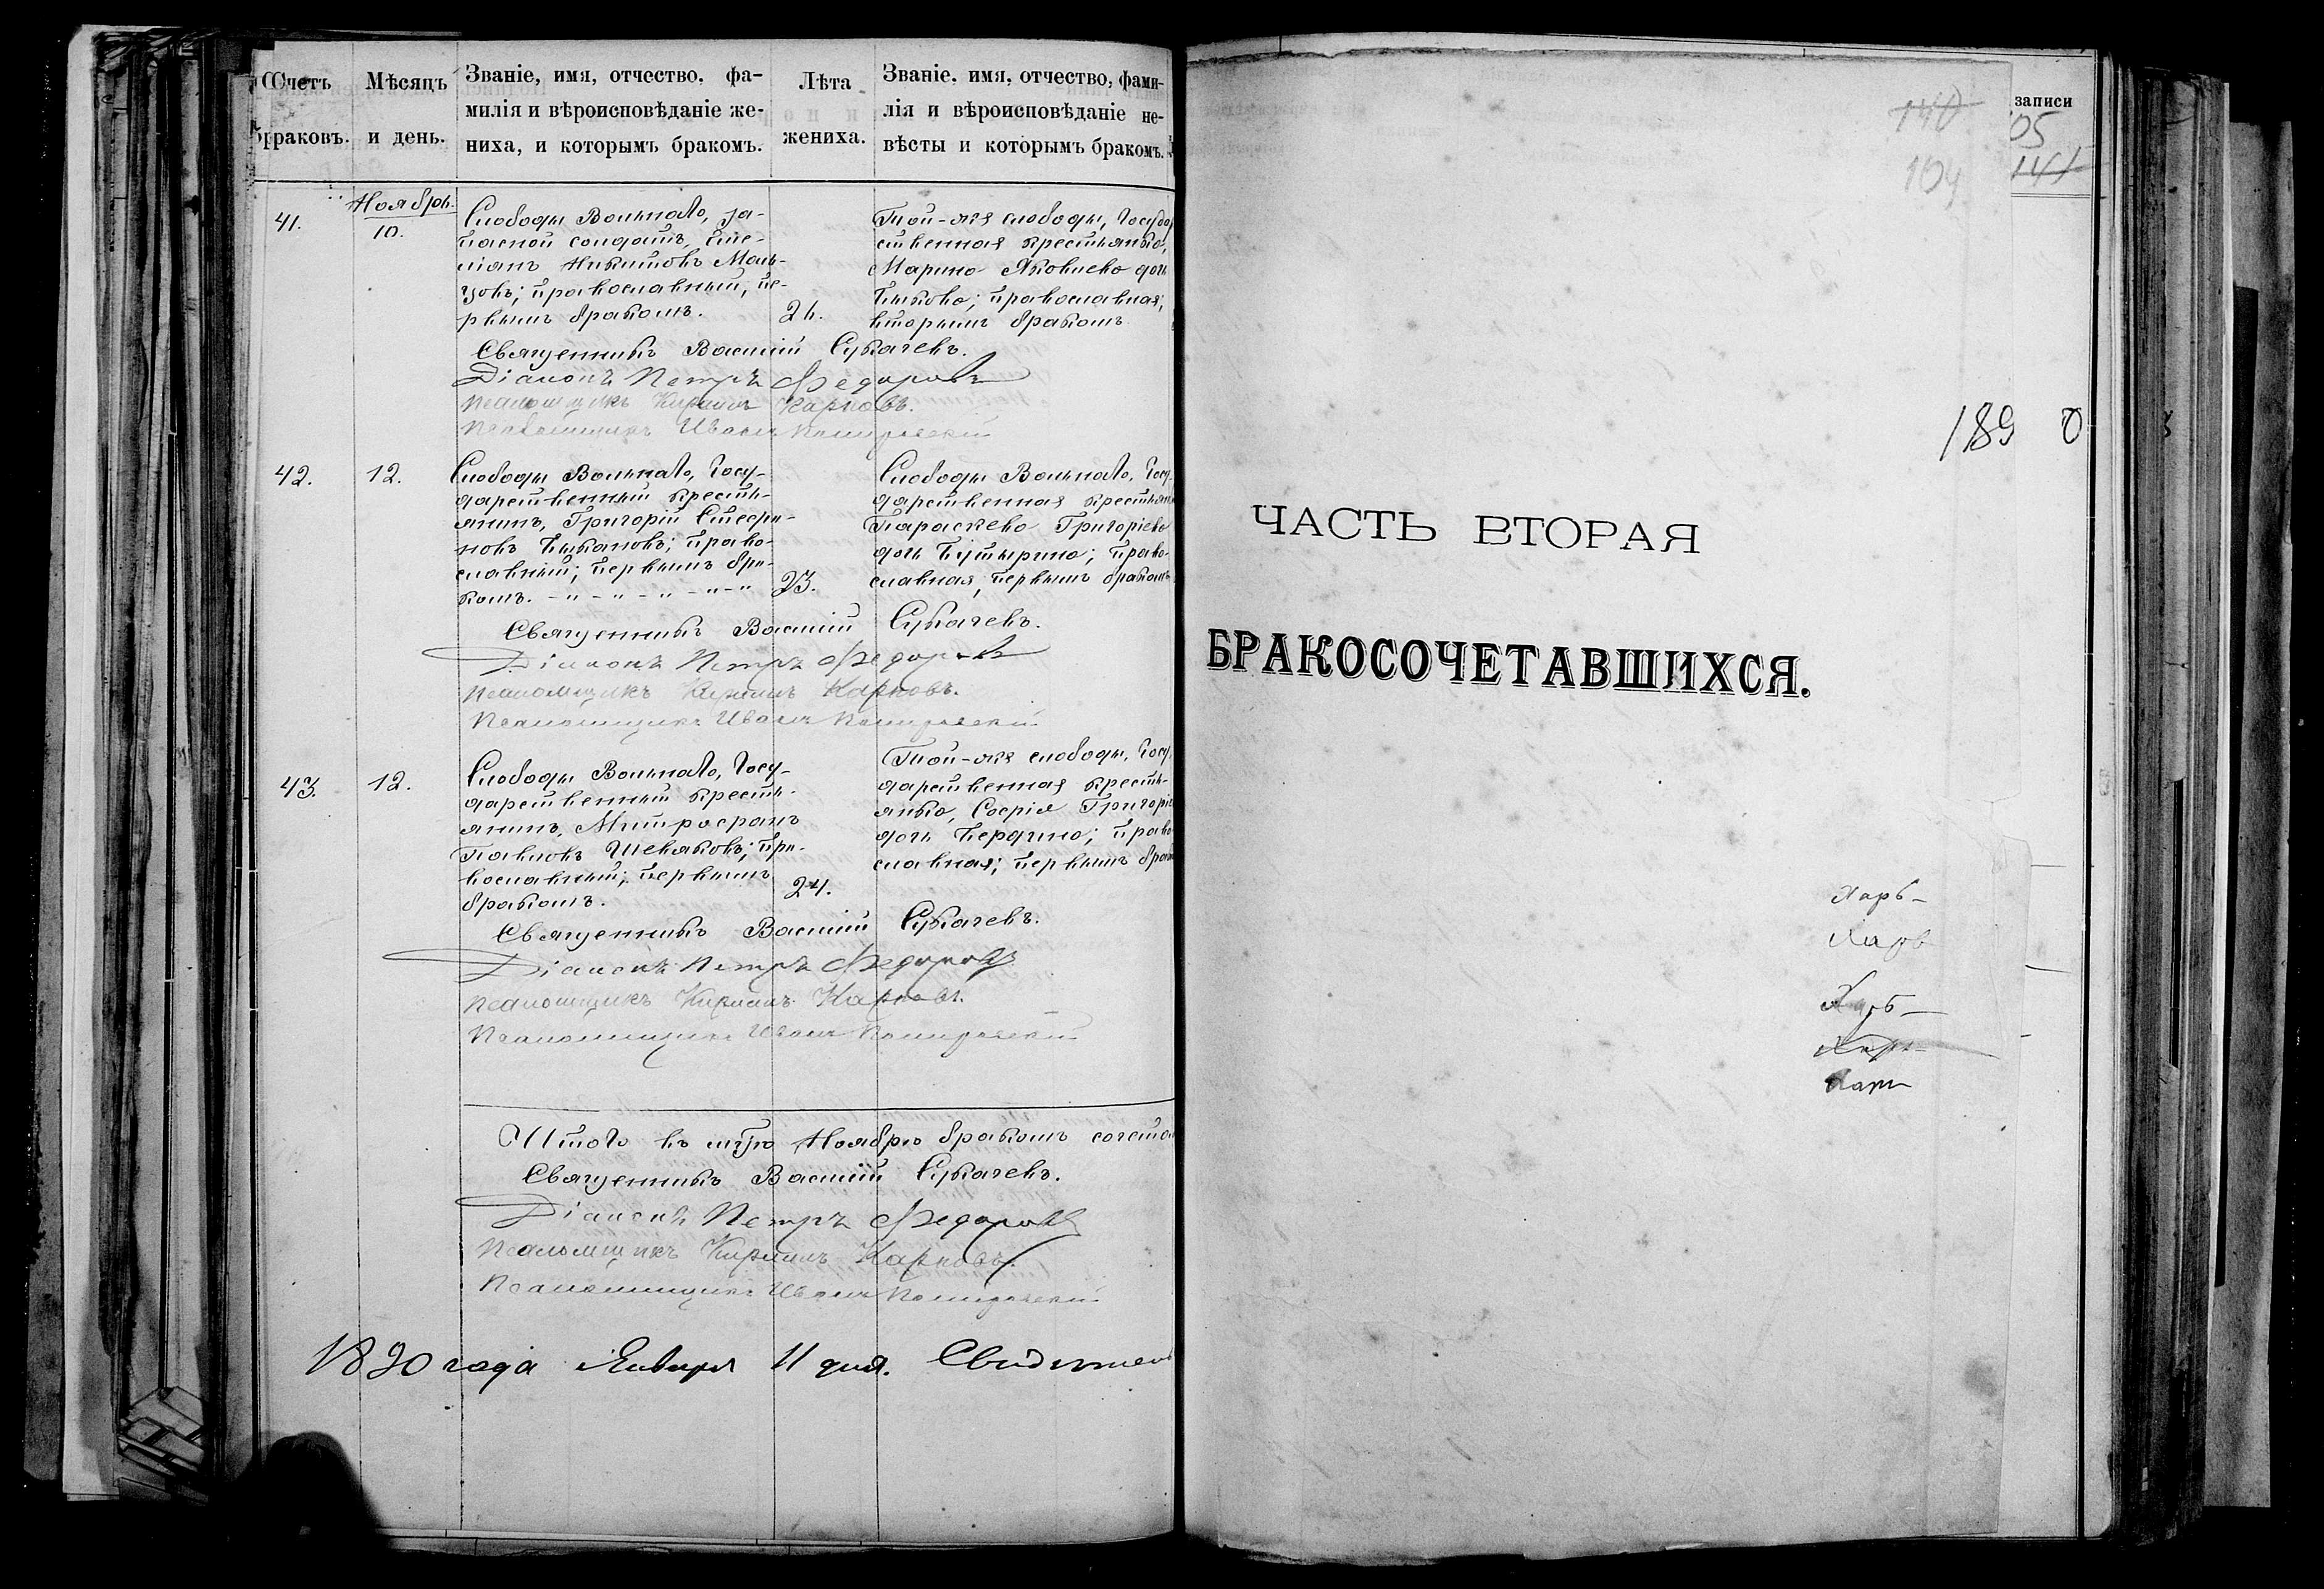 Счетъ браковъ.
Мѣсяцъ и день.
Званіе, имя, отчество, фа-
милія и вѣроисповѣданіе же-
ниха, и которымъ бракомъ.
Лѣта
жениха.
Званіе, имя, отчество, фами-
лія и вѣроисповѣданіе не-
вѣсты и которымъ бракомъ.
41.
Ноябрь.
10.
Слободы Вольнаго, за-
пасной солдатъ,
Никитовъ
православный, пе-
рвымъ бракомъ.
Той-же слободы, Государ
ственная крестьянка,
Марина Яковлева дочь
Быкова; православная;
вторымъ бракомъ
Священникъ Василій Сукачевъ.
Діаконъ Петръ Федоровъ
Псаломщикъ Кириллъ Карповъ.
Псаломщикъ Иванъ
42.
12.
Слободы Вольнаго, Госу-
дарственный кресть-
янинъ, Григорій Стефа-
новъ Цыкановъ; право-
славный; первымъ бра-
комъ. - " - " - " - " - "
23.
Слободы Вольнаго, Госу
дарственная крестьян
Параскева Григоріева
дочь Бутырина; право-
славная; первымъ бракомъ
Священникъ Василій Сукачевъ.
Діаконъ Петръ Федоровъ
Псаломщикъ Кириллъ Карповъ.
Псаломщикъ Иванъ
43.
12.
Слободы Вольнаго, Госу-
дарственный кресть-
янинъ, Митрофанъ
Павловъ Шевляковъ; пра-
вославный; первымъ
бракомъ.
24.
Той-же слободы, Госу
дарственная кресть-
янка, Софія Григоріе
дочь Бердина; право
славная; первымъ брак
Священникъ Василій Сукачевъ.
Діаконъ Петръ Федоровъ
Псаломщикъ Кириллъ Карповъ.
Псаломщикъ Иванъ
Итого въ мцѣ Ноябрѣ бракомъ сочета
Священникъ Василій Сукачевъ.
Діаконъ Петръ Федоровъ
Псаломщикъ Кириллъ Карповъ.
Псаломщикъ Иванъ
1890 года Января 11 дня.
140
104
записи
05
141
189 0
ЧАСТЬ ВТОРАЯ
БРАКОСОЧЕТАВШИХСЯ.
Харь-